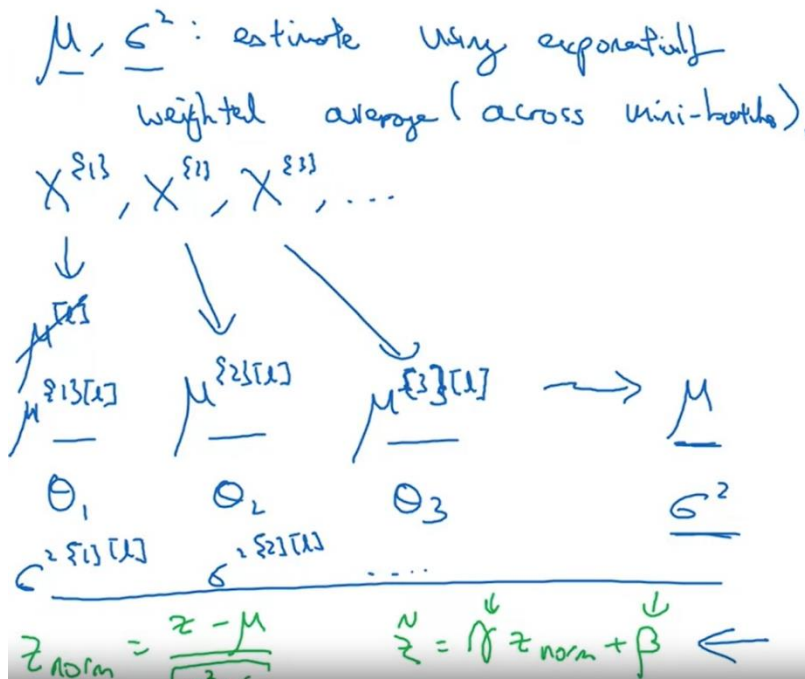 μ, σ²: estimate using exponentially
weighted average (across mini-batches).
X^{1}, X^{2}, X^{3}, ...
μ^[l]
μ^{1}[l] μ^{2}[l] μ^{3}[l] → μ
θ₁ θ₂ θ₃ σ²
σ²^{1}[l] σ²^{2}[l] ....
z_norm = (z - μ) / √(σ²
z̃ = γ z_norm + β ←